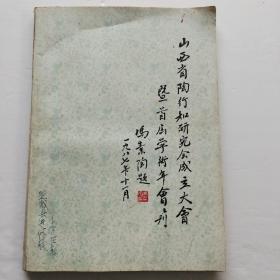 山西省陶行知研究会成立大會
暨首届学術年會会刊
馮素陶題
一九八七年十一月